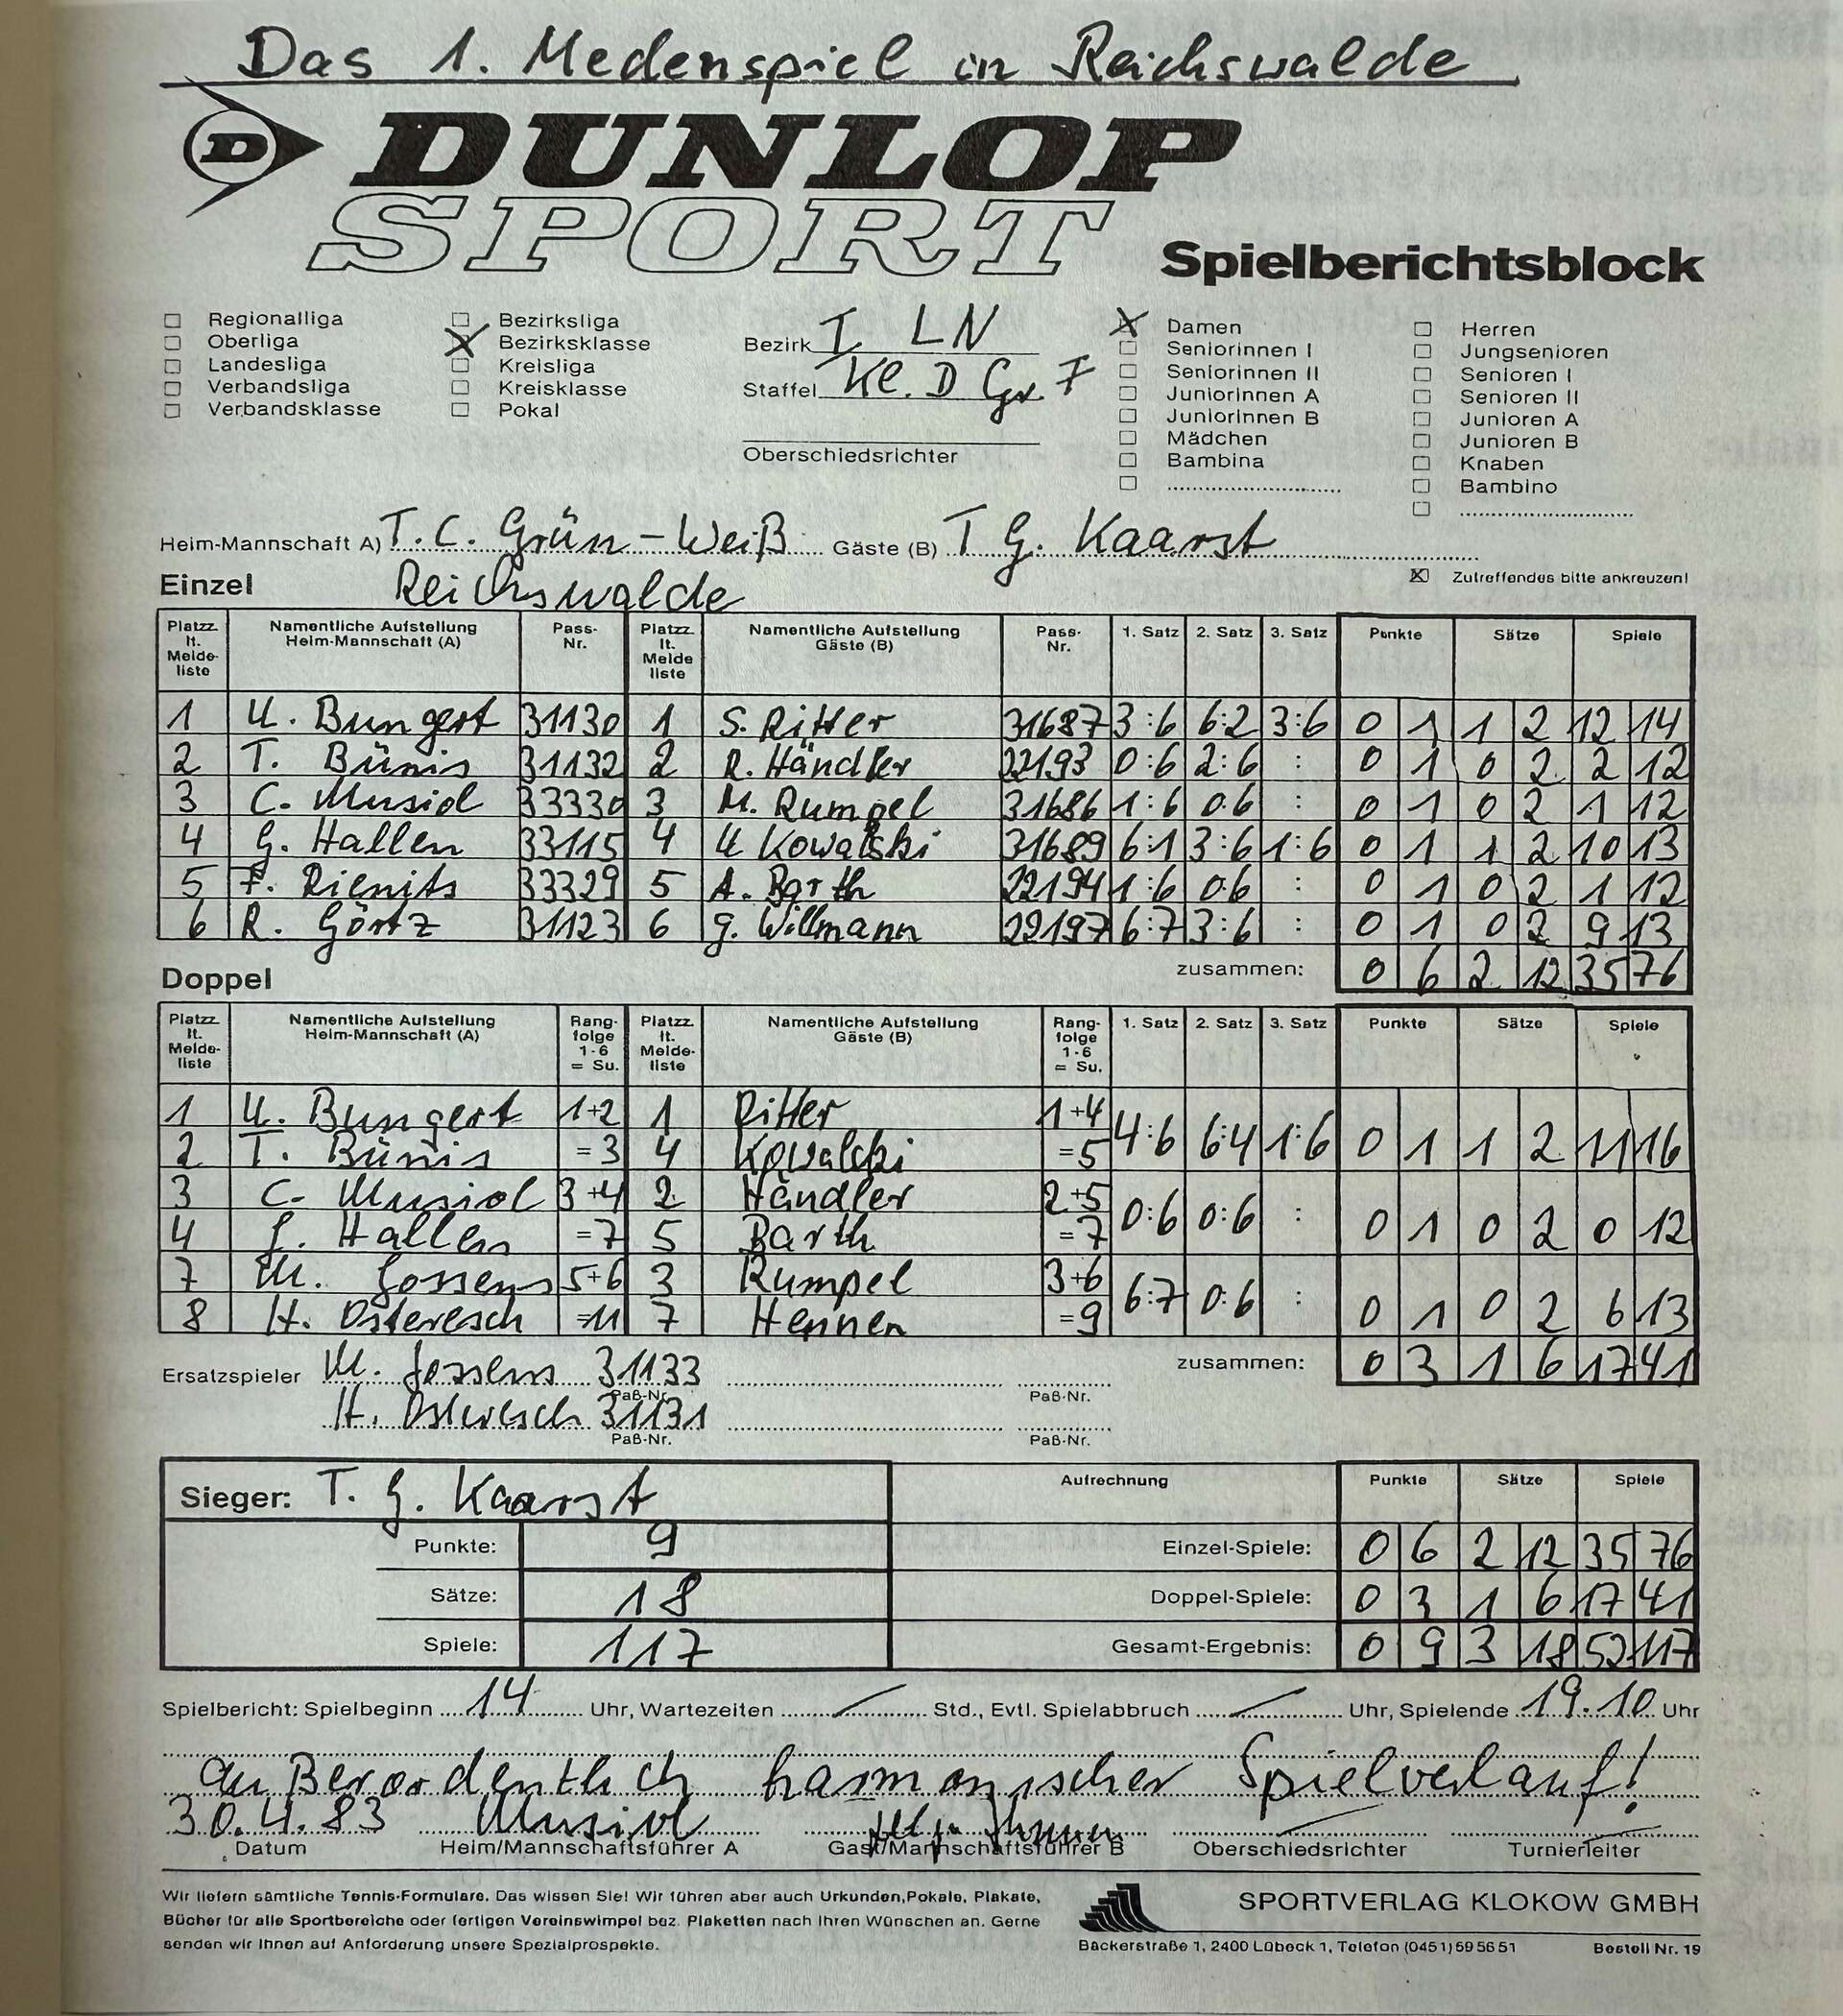 Das 1. Medenspiel in Reichswalde
D DUNLOP
SPORT
Spielberichtsblock
Regionalliga
Oberliga
Landesliga
Verbandsliga
Verbandsklasse
Bezirksliga
Bezirksklasse
Kreisliga
Kreisklasse
Pokal
Bezirk I LN
Staffel Kl. D Gr. 7
Oberschiedsrichter
Damen
Seniorinnen I
Seniorinnen II
Juniorinnen A
Juniorinnen B
Mädchen
Bambina
Herren
Jungsenioren
Senioren I
Senioren II
Junioren A
Junioren B
Knaben
Bambino
Heim-Mannschaft A) T.C. Grün-Weiß Gäste (B) T G. Kaarst
Einzel Reichswalde Zutreffendes bitte ankreuzen!
Platzz. lt. Melde-liste Namentliche Aufstellung Heim-Mannschaft (A) Pass-Nr. Platzz. lt. Melde liste Namentliche Aufstellung Gäste (B) Pass-Nr. 1. Satz 2. Satz 3. Satz Punkte Sätze Spiele
1 U. Bungert 31130 1 S. Ritter 31687 3:6 6:2 3:6 0 1 1 2 12 14
2 T. Bünis 31132 2 R. Händler 22193 0:6 2:6 : 0 1 0 2 2 12
3 C. Musiol 33330 3 M. Rumpel 31686 1:6 0:6 : 0 1 0 2 1 12
4 G. Hallen 33115 4 U Kowalski 31689 6:1 3:6 1:6 0 1 1 2 10 13
5 F. Rienits 33329 5 A. Barth 22194 1:6 0:6 : 0 1 0 2 1 12
6 R. Görtz 31123 6 G. Willmann 22197 6:7 3:6 : 0 1 0 2 9 13
zusammen: 0 6 2 12 35 76
Doppel
Platzz. lt. Melde-liste Namentliche Aufstellung Heim-Mannschaft (A) Rang-folge 1-6 = Su. Platzz. lt. Melde-liste Namentliche Aufstellung Gäste (B) Rang-folge 1-6 = Su. 1. Satz 2. Satz 3. Satz Punkte Sätze Spiele
1 U. Bungert 1+2 1 Ritter 1+4
2 T. Bünis =3 4 Kowalski =5 4:6 6:4 1:6 0 1 1 2 11 16
3 C. Musiol 3+4 2 Händler 2+5
4 G. Hallen =7 5 Barth =7 0:6 0:6 : 0 1 0 2 0 12
7 M. Gossens 5+6 3 Rumpel 3+6
8 H. Osteresch =11 7 Hennen =9 6:7 0:6 : 0 1 0 2 6 13
zusammen: 0 3 1 6 17 41
Ersatzspieler M. Gossens 31133
Paß-Nr. Paß-Nr.
H. Osteresch 31131
Paß-Nr. Paß-Nr.
Sieger: T. G. Kaarst Aufrechnung Punkte Sätze Spiele
Punkte: 9 Einzel-Spiele: 0 6 2 12 35 76
Sätze: 18 Doppel-Spiele: 0 3 1 6 17 41
Spiele: 117 Gesamt-Ergebnis: 0 9 3 18 52 117
Spielbericht: Spielbeginn 14 Uhr, Wartezeiten Std., Evtl. Spielabbruch Uhr, Spielende 19.10 Uhr
außerordentlich harmonischer Spielverlauf!
30.4.83 Musiol
Datum Heim/Mannschaftsführer A Gast/Mannschaftsführer B Oberschiedsrichter Turnierleiter
Wir liefern sämtliche Tennis-Formulare. Das wissen Sie! Wir führen aber auch Urkunden, Pokale, Plakate,
Bücher für alle Sportbereiche oder fertigen Vereinswimpel bez. Plaketten nach Ihren Wünschen an. Gerne
senden wir Ihnen auf Anforderung unsere Spezialprospekte.
SPORTVERLAG KLOKOW GMBH
Bäckerstraße 1, 2400 Lübeck 1, Telefon (0451) 59 56 51 Bestell Nr. 19